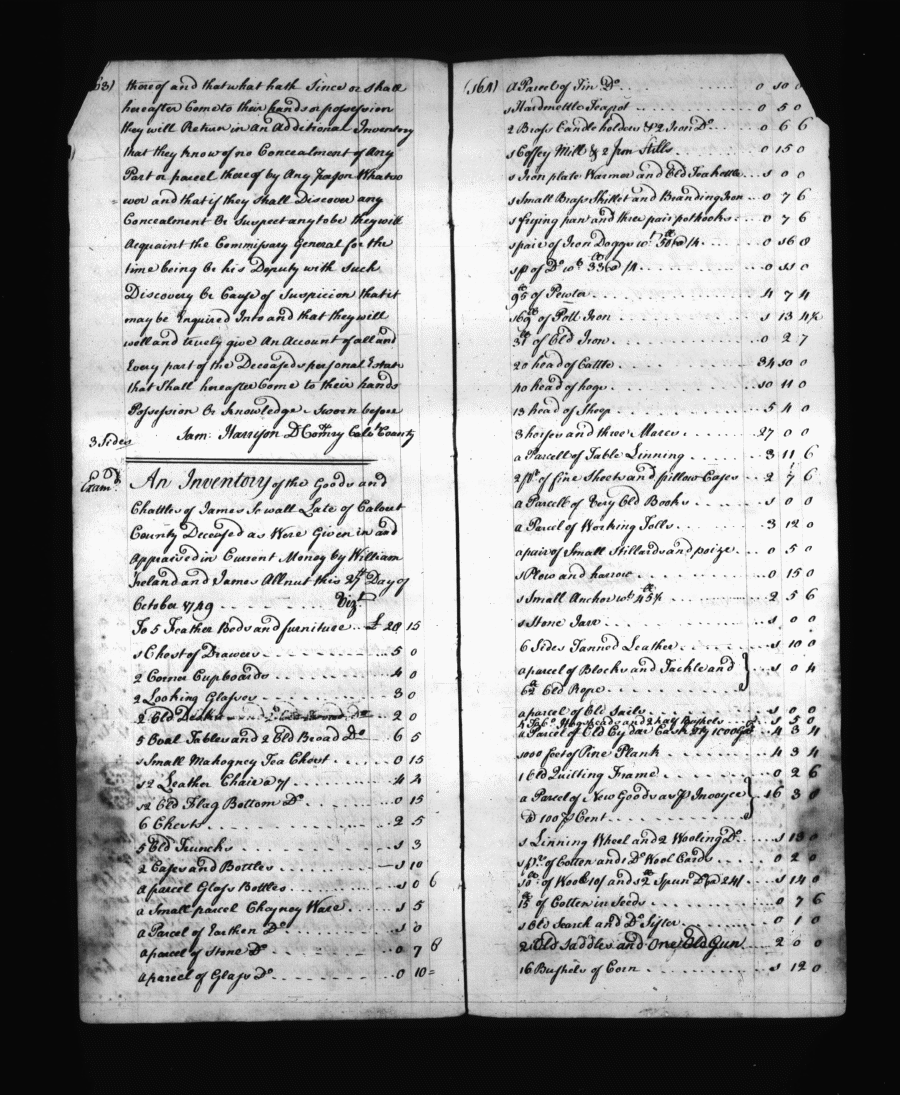 63)
thereof and that what hath Since or shall
hereafter Come to their hands or possession
they will Return in An Additional Inventory
that they know of no Concealment of Any
Part or parcel thereof by Any person Whatso
ever and that if they Shall Discover any
Concealment Or Suspect any to be they will
Acquaint the Commissary General for the
time being or his Deputy with Such
Discovery Or Cause of Suspicion that it
may be Enquired Into and that they will
well and truely give An Account of all and
Every part of the Deceased's personal Estate
that Shall hereafter Come to their hands
Possession Or Knowledge Sworn before
3 Sides
Sam: Harrison D Comry Calvt County
Exam.d
An Inventory of the Goods and
Chattles of James Sewall Late of Calvert
County Deceased as Were Given in and
Appraised in Current Money by William
Ireland and James Allnut this 27th Day of
October 1749 Vizt
To 5 Feather Beds and furniture £ 28 15
1 Chest of Drawers 5 0
2 Corner Cupboards 4 0
2 Looking Glasses 3 0
2 Old Desks 2 0
5 Oval Tables and 2 Old Broad Do 6 5
1 Small Mahogney Tea Chest 0 15
12 Leather Chairs a 7/ 4 4
12 Old Flag Bottom Do 0 15
6 Chests 2 5
5 Old Trunks 1 3
2 Cases and Bottles 1 10
a parcel Glass Bottles 1 0 6
a Small parcel Cheyney Ware 1 5
a Parcel of Earthen Do 1 0
a parcel of Stone Do 0 7 6
a parcel of Glass Do 0 10
(164)
a Parcel of Tin Do 0 10 0
1 Hardmettle Teapot 0 5 0
2 Brass Candle holders & 2 Iron Do 0 6 6
1 Coffey Mill & 2 Iron Stills 0 15 0
1 Iron plate Warmer and Old Teakettle 1 0 0
1 Small Brass Skillet and Branding Iron 0 7 6
1 frying pan and three pair pothooks 0 7 6
1 pair of Iron Doggs wt 50 lb @ /4 0 16 8
1 pr of Do wt 33 lb @ /4 0 11 0
95 lb of Pewter 4 7 4
169 lb of Pott Iron 1 13 4½
31 lb of Old Iron 0 2 7
20 head of Cattle 34 10 0
40 head of hogs 10 11 0
13 head of Sheep 5 4 0
3 horses and three Mares 27 0 0
a Parcell of Table Linning 3 11 6
2 pr of fine Sheets and pillow Cases 2 7 6
a Parcell of Very Old Books 1 0 0
a Parcel of Working Tolls 3 12 0
a pair of Small Stillards and poize 0 5 0
1 Plow and harrow 0 15 0
1 Small Anchor wt 45 lb 2 5 6
1 Stone Jarr 1 0 0
6 Sides Tanned Leather 1 10 0
a parcel of Blocks and Tackle and 1 0 4
62 Old Rope
a parcel of Old Sails 1 0 0
4 Tobo Hogsheads and 2 half Bushels 1 5 0
a Parcel of Old Cydar Cask 4 3 4
1000 feet of Pine Plank 4 3 4
1 Old Quilting Frame 0 2 6
a Parcel of New Goods as pr Invoyce 16 3 8
@ 100 pr Cent
1 Linning Wheel and 2 Wooling Do 1 13 0
1 pr of Cotten and 1 Do Wool Cards 0 2 0
10 lb of Wool 10/ and 12 lb Spun Do @ 24/ 1 14 0
15 lb of Cotten in Seeds 0 7 6
1 Old Search and Do Sifter 0 1 0
2 Old Saddles and One Old Gun 2 0 0
16 Bushels of Corn 1 12 0